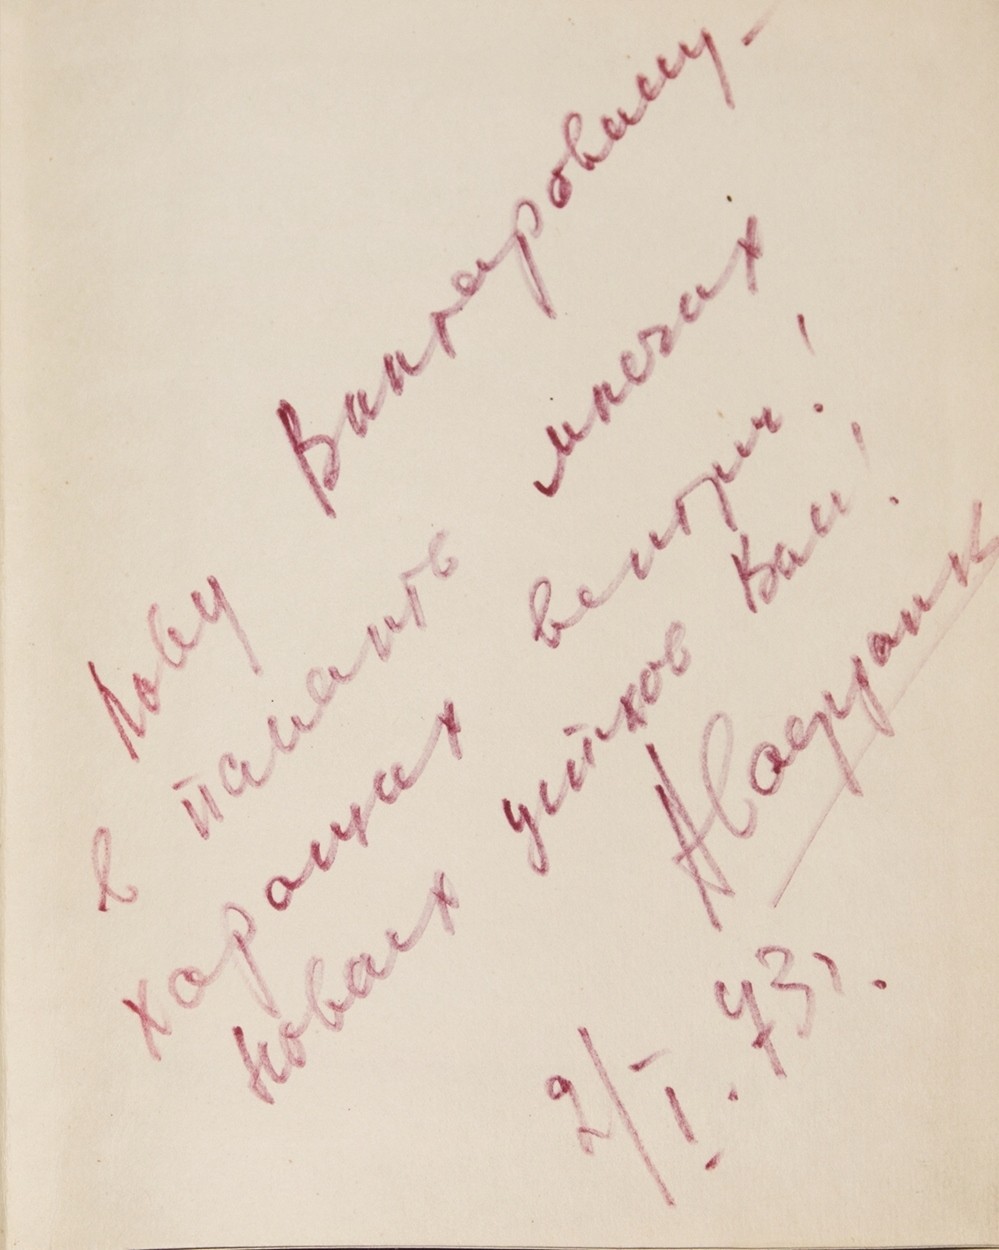 Льву Викторовичу -
в память многих
хороших встреч!
Новых успехов Вам!
2/I. 73 г.